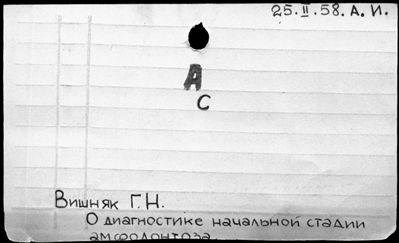 25.II.58. А. И.
А
С
Вишняк Г.Н.
О диагностике начальной стадии
амфодонтоза.